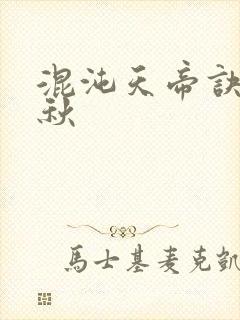 混沌天帝訣
秋
馬士基麥克凱